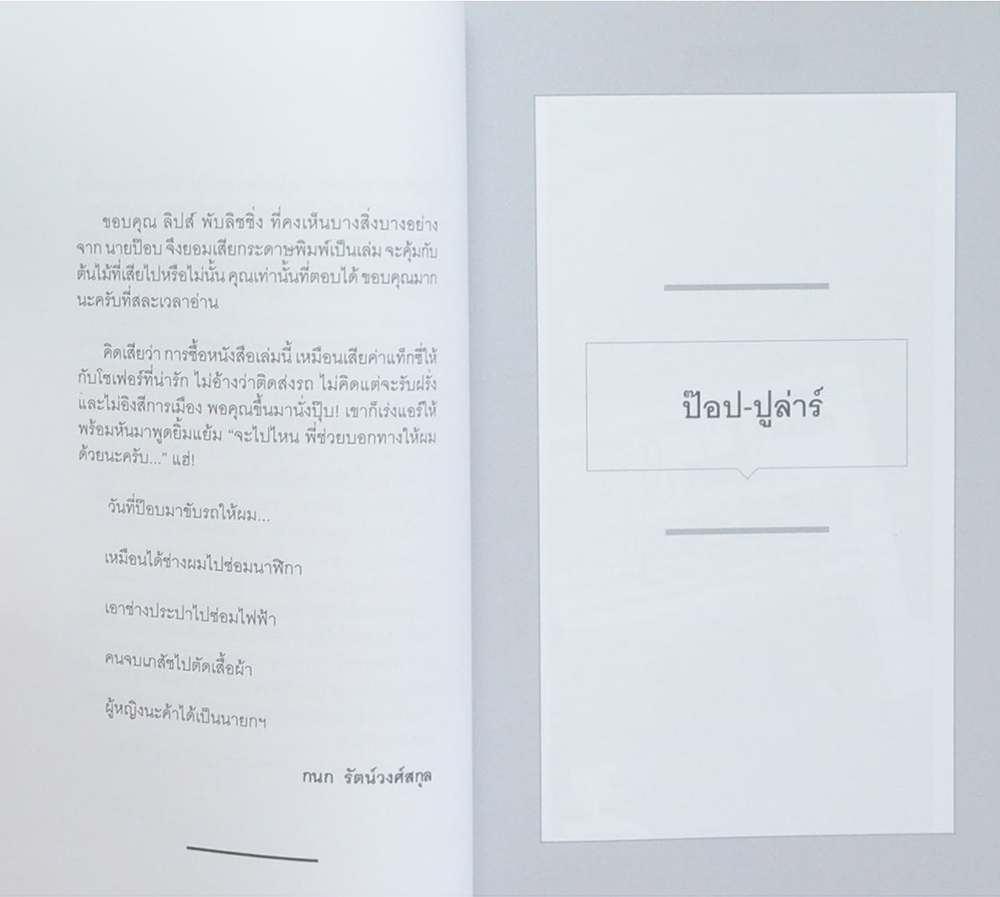 ขอบคุณ ลิปส์ พับลิชชิ่ง ที่คงเห็นบางสิ่งบางอย่าง
จาก นายป๊อบ จึงยอมเสียกระดาษพิมพ์เป็นเล่ม จะคุ้มกับ
ต้นไม้ที่เสียไปหรือไม่นั้น คุณเท่านั้นที่ตอบได้ ขอบคุณมาก
นะครับที่สละเวลาอ่าน
คิดเสียว่า การซื้อหนังสือเล่มนี้ เหมือนเสียค่าแท็กซี่ให้
กับโชเฟอร์ที่น่ารัก ไม่อ้างว่าติดส่งรถ ไม่คิดแต่จะรับฝรั่ง
และไม่อิงสีการเมือง พอคุณขึ้นมานั่งปุ๊บ! เขาก็เร่งแอร์ให้
พร้อมหันมาพูดยิ้มแย้ม “จะไปไหน พี่ช่วยบอกทางให้ผม
ด้วยนะครับ...” แฮ่!
วันที่ป๊อบมาขับรถให้ผม...
เหมือนได้ช่างผมไปซ่อมนาฬิกา
เอาช่างประปาไปซ่อมไฟฟ้า
คนจบเภสัชไปตัดเสื้อผ้า
ผู้หญิงนะค้าได้เป็นนายกฯ
กนก รัตน์วงศ์สกุล
ป๊อป-ปูล่าร์